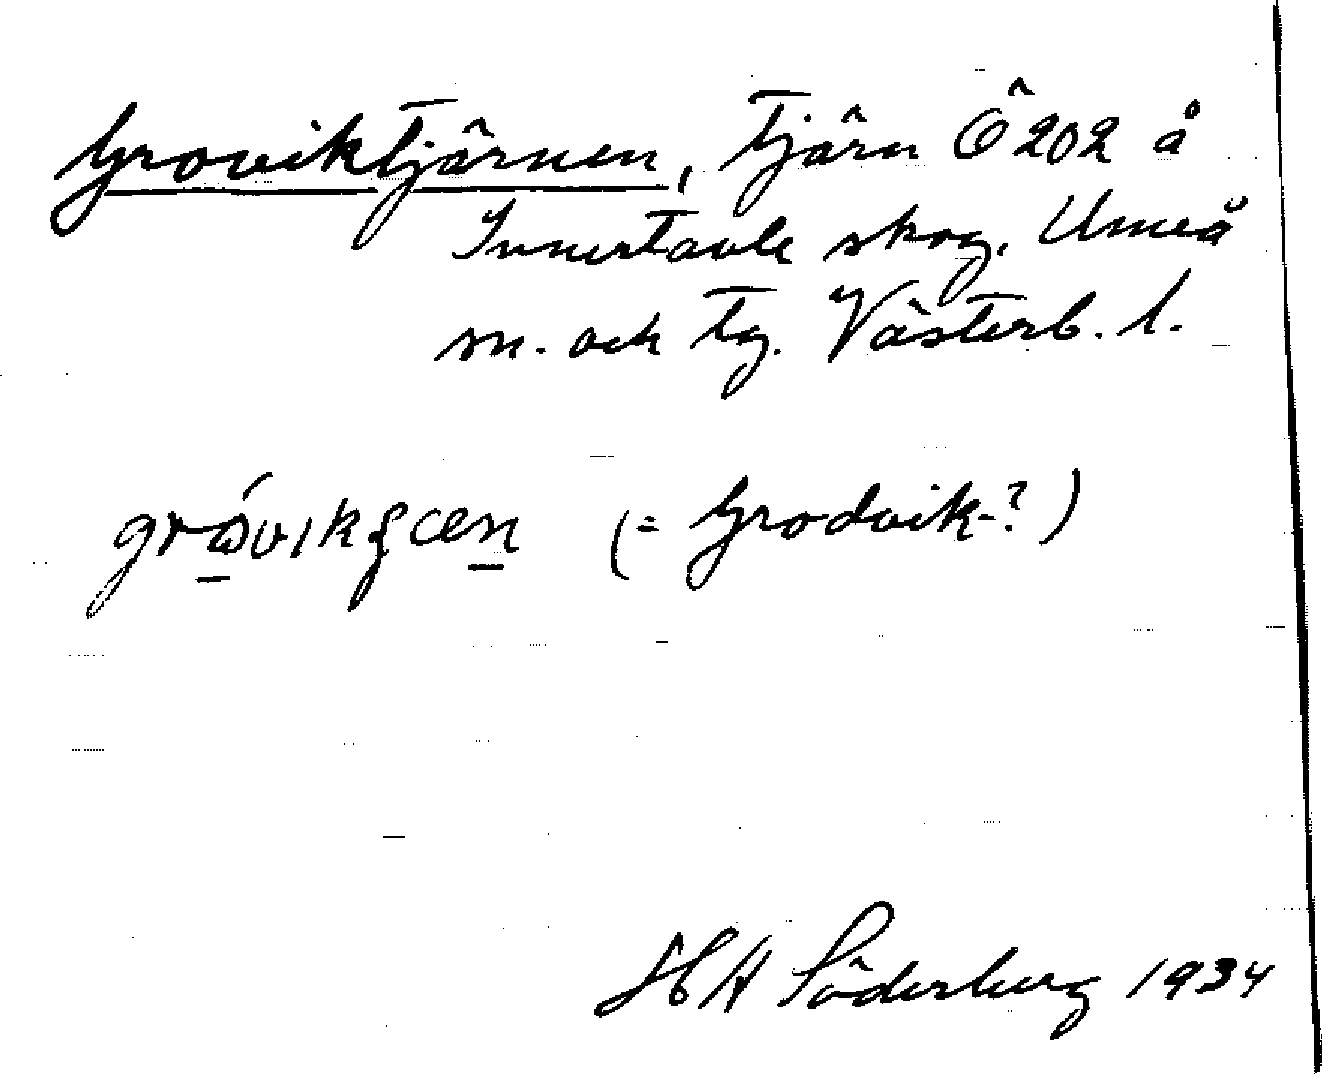 Groviktjärnen, Tjärn Ö 202 å
Innertavle skog, Umeå
sn. och tg. Västerb. l.
(= Grodvik-?)
HA Söderberg 1934